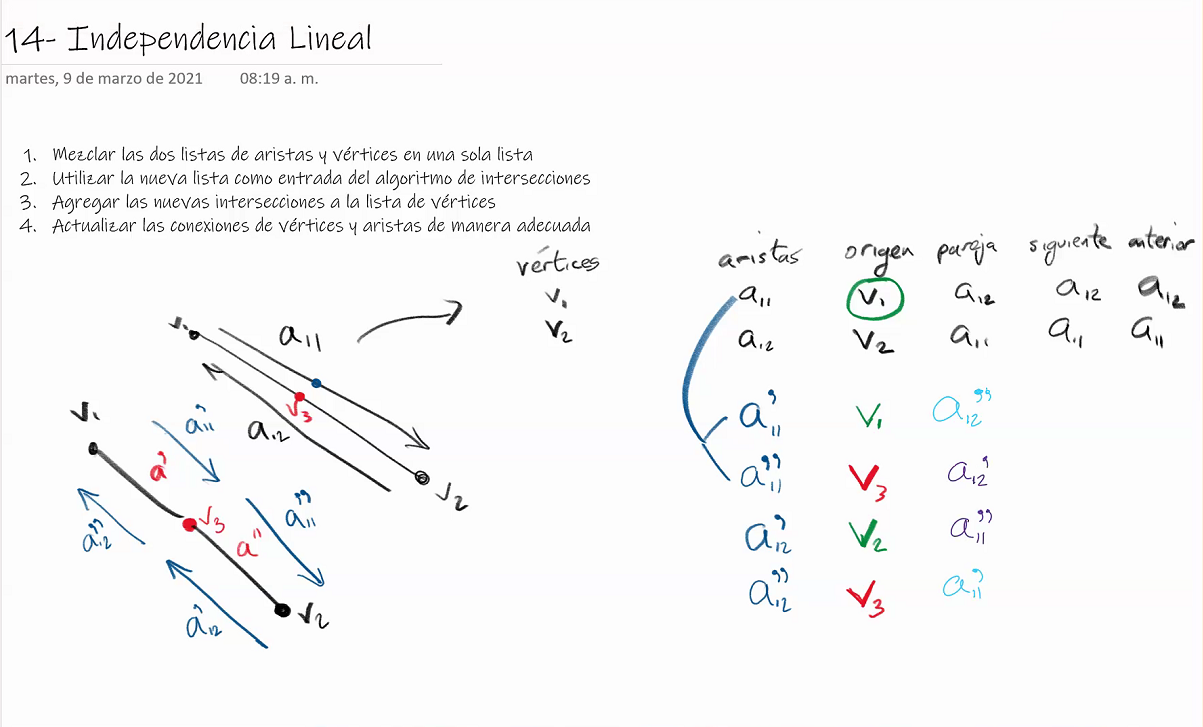 14- Independencia Lineal
martes, 9 de marzo de 2021 08:19 a. m.
1. Mezclar las dos listas de aristas y vértices en una sola lista
2. Utilizar la nueva lista como entrada del algoritmo de intersecciones
3. Agregar las nuevas intersecciones a la lista de vértices
4. Actualizar las conexiones de vértices y aristas de manera adecuada
vértices
v₁
v₂
aristas origen pareja siguiente anterior
a₁₁ v₁ a₁₂ a₁₂ a₁₂
a₁₂ v₂ a₁₁ a₁₁ a₁₁
a₁₁' v₁ a₁₂''
a₁₁'' v₃ a₁₂'
a₁₂' v₂ a₁₁''
a₁₂'' v₃ a₁₁'
v₁
a₁₁
v₃
a₁₂
v₂
v₁
a₁₁'
a'
v₃
a₁₁''
a₁₂''
a''
a₁₂'
v₂